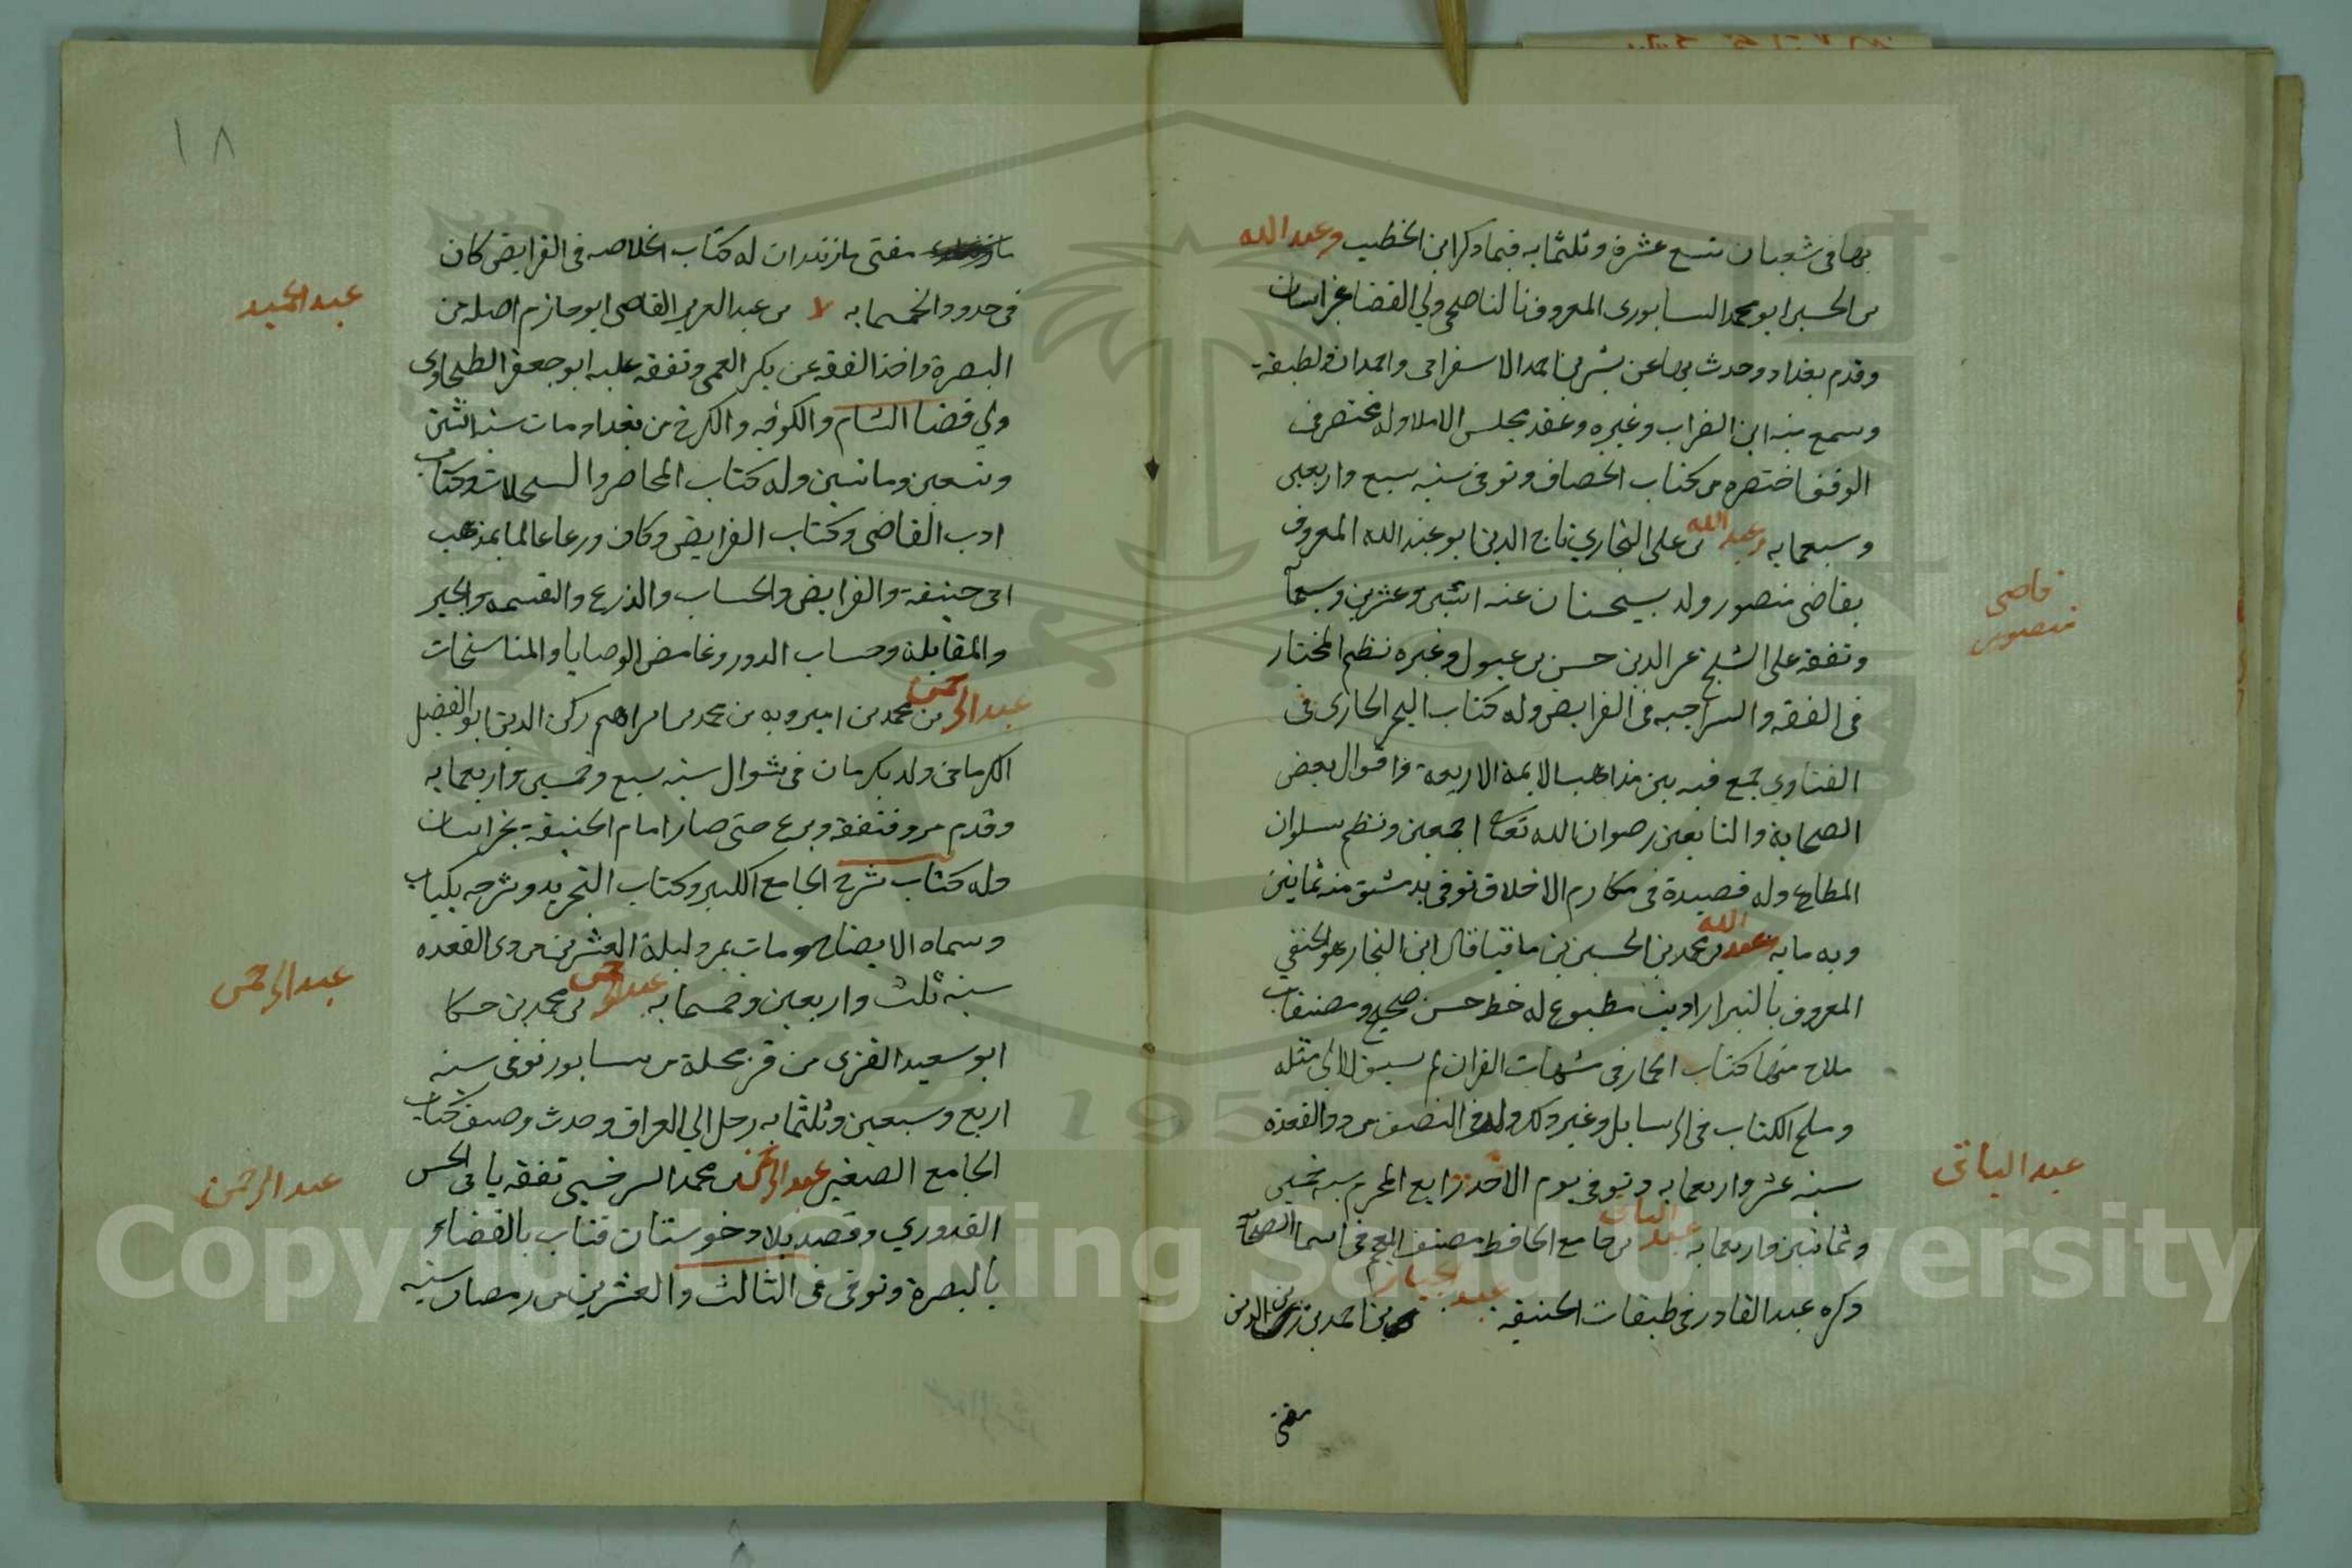 بها فى شعبان تسع عشرة وثلثمايه فيما ذكر ابن الخطيب وعبد الله
بن الحسين ابو محمد النسابورى المعروف بالناصحى ولي القضا بخراسان
وقدم بغداد وحدث بها عن بشر بن احمد الاسفراىى واحمدان ولطبقة
وسمع منه ابن الضراب وغيره وعقد مجلس الاملا وله مختصر فى
الوقف اختصره من كتاب الخصاف وتوفى سنه سبع واربعين
وسبعمايه وعبد الله بن على البخاري تاج الدين ابو عبد الله المعروف
قاضى
منصور
بقاضى منصور ولد بسنجستان عنه اثنين وعشرين وسبعما
وتفقه على الشيخ عز الدين حسن بن عيسول وغيره نظم المختار
فى الفقه والسراجيه فى الفرايض وله كتاب البحر الحارى فى
الفتاوي جمع فيه بين مذاهب الايمة الاربعة واقوال بعض
الصحابة والتابعين رضوان الله تعالى اجمعين ونظم سلوان
المطاع وله قصيدة فى مكارم الاخلاق توفى بدمشق منه ثمانين
وبه مايه عبد الله بن محمد بن الحسين بن ماقيا قال ابن النجار هو الحنفي
المعروف بالنبرار اديب مطبوع له خط حسن صحيح ومصنفات
ملاح منها كتاب الجمار فى شبهات القران لم يسبق الى مثله
وملح الكتاب فى الرسايل وغير ذلك ولد فى النصف من ذى القعدة
عبد الباقى
سنه عشر واربعمايه وتوفى يوم الاحد رابع المحرم سنه خمس
وثمانين واربعمايه عبد الباقى بن جامع الحافظ مصنف المعجم فى اسما الصحا
ذكره عبد القادر فى طبقات الحنيفه عبد الجبار بن احمد بن زين الدين
مفتى
١٨
مفتى مازندران له كتاب الخلاصه فى الفرايض كان
عبد الحميد
فى حدود الخمسمايه بن عبد العزيز القاضى ابو حازم اصله من
البصرة واخذ الفقه عن بكر العمى وتفقه عليه ابو جعفر الطحاوى
ولي قضا الشام والكوفه والكرخ من بغداد مات سنه اثنتين
وتسعين ومائتين وله كتاب المحاضر والسجلات وكتاب
ادب القاضى وكتاب الفرايض وكان ورعا عالما بمذهب
ابى حنيفة والفرايض والحساب والذرع والقسمه والجبر
والمقابلة وحساب الدور وغامض الوصايا والمناسخات
عبد الرحمن بن محمد بن اميرويه بن محمد بن ابراهيم ركن الدين ابو الفضل
الكرمانى ولد بكرمان فى شوال سنه سبع وخمسين واربعمايه
وقدم مرو فتفقه وبرع حتى صار امام الحنيفة بخراسان
وله كتاب شرح الجامع الكبير وكتاب التجريد وشرحه بكتاب
عبد الرحمن
وسماه الايضاح ومات بمرو ليلة العشرين من ذى القعده
سنه ثلث واربعين وخمسمايه عبد الرحمن بن محمد بن حسكا
ابو سعيد الفزى من قز محلة من نسابور توفى سنه
اربع وسبعين وثلثمايه رحل الي العراق وحدث وصنف كتاب
عبد الرحمن
الجامع الصغير عبد الرحمن بن محمد السرخسى تفقه بابى الحسن
القدوري وقصد بلاد خوستان قتاب بالقضاء
بالبصرة وتوفى فى الثالث والعشرين من رمضان سنه
Copyright © King Saud University
1957